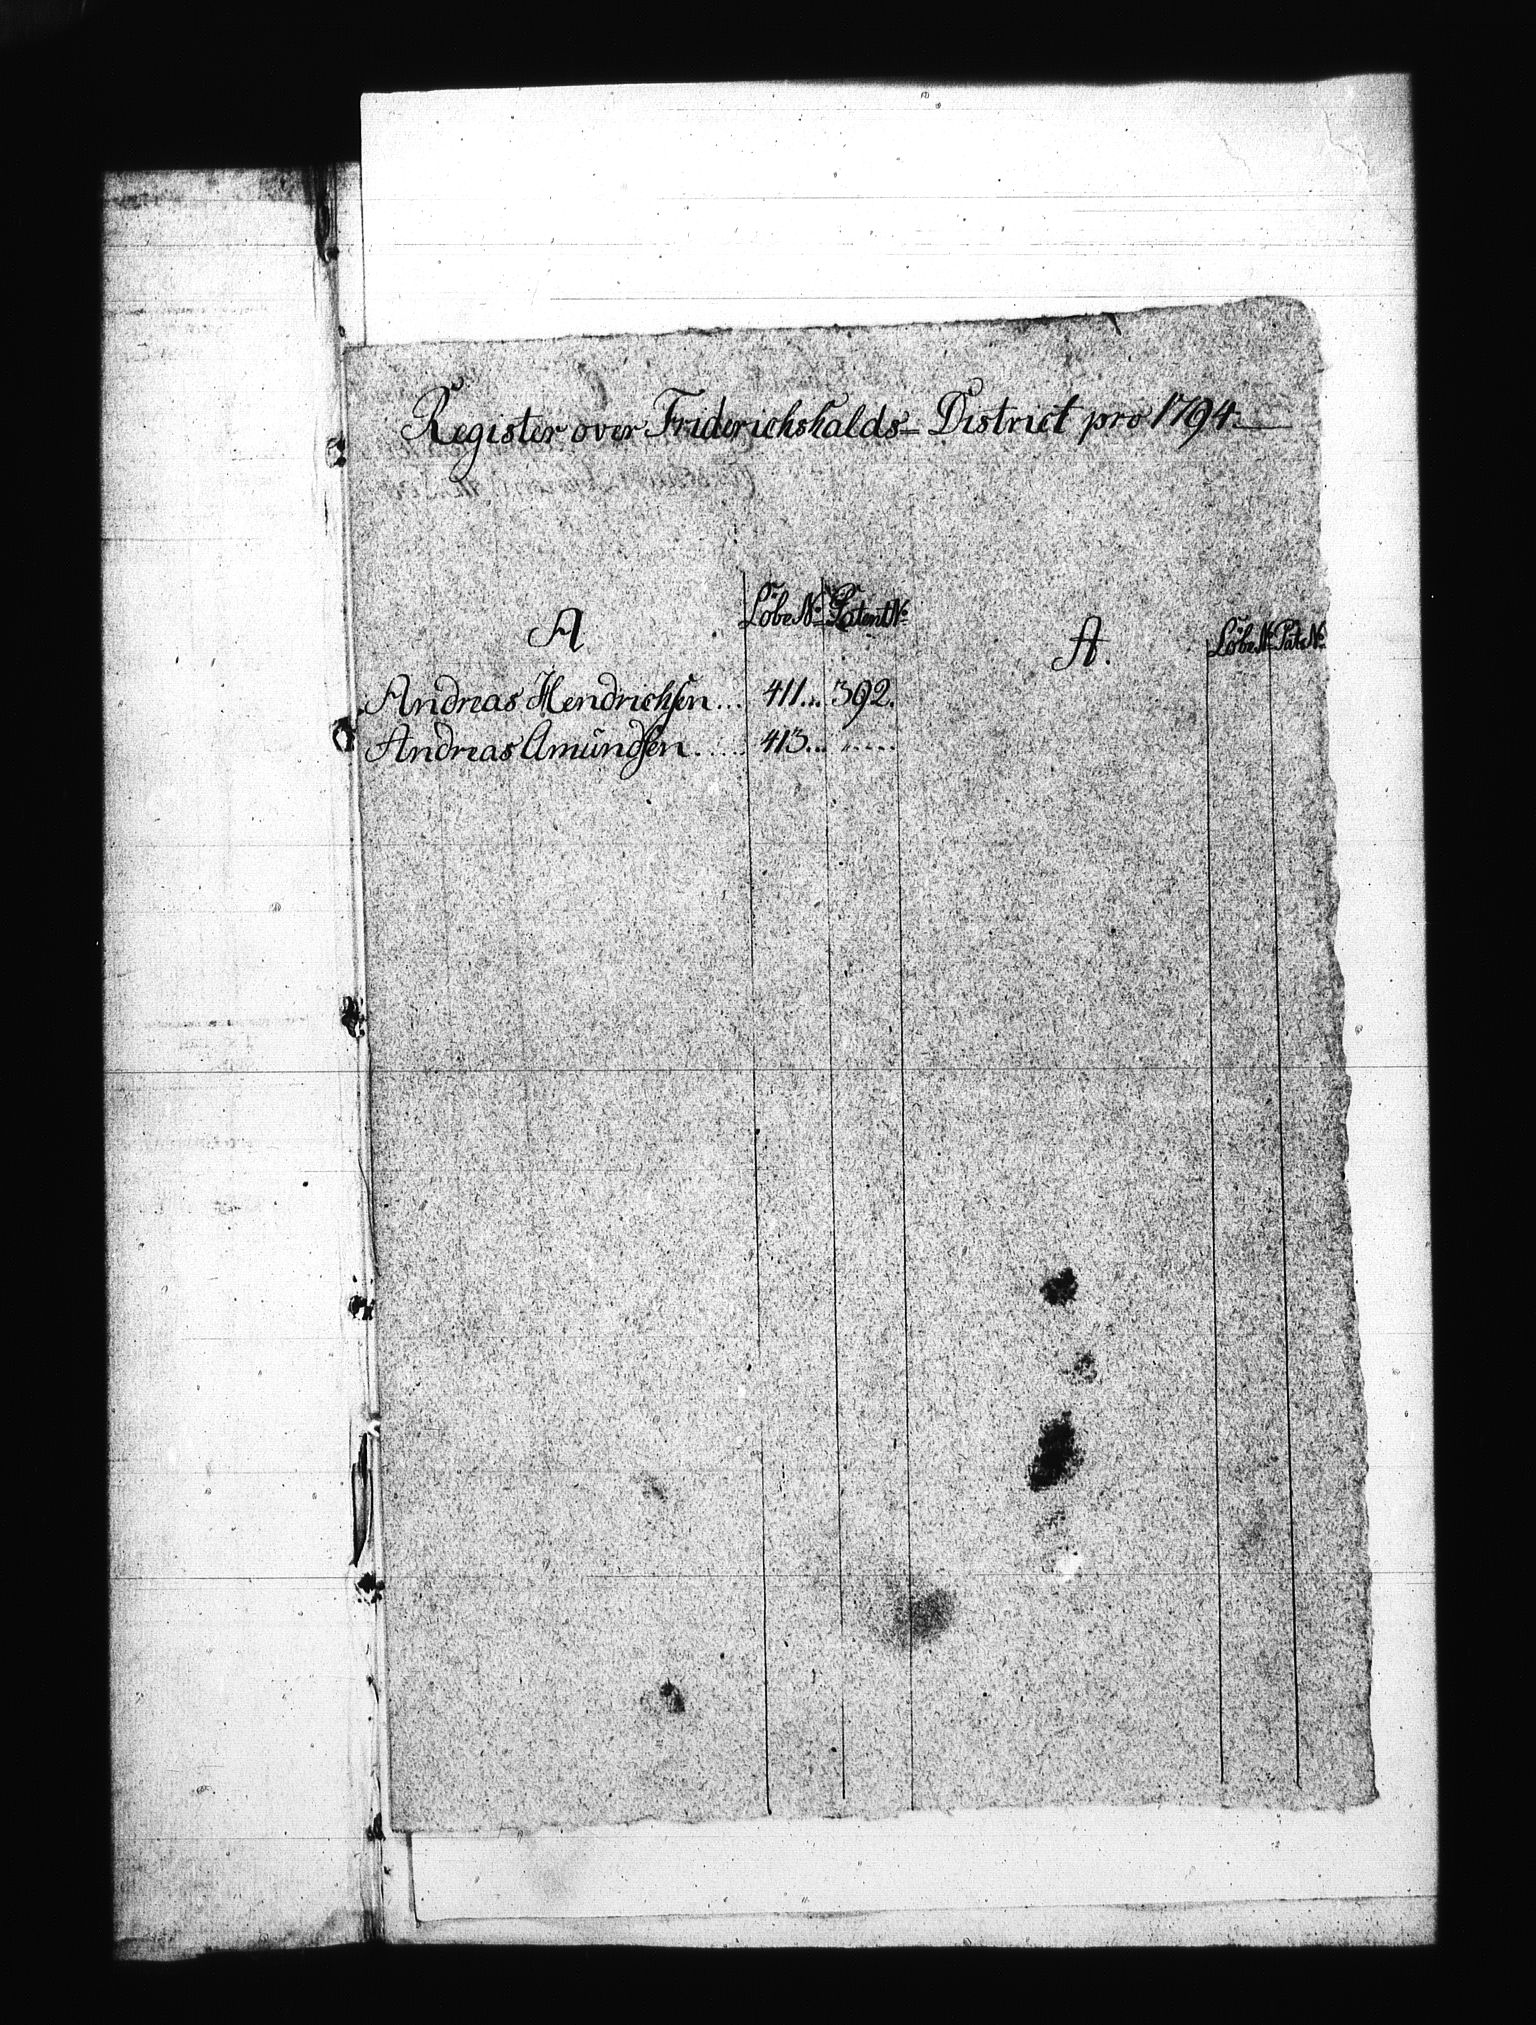 Register over Friderichshalds District pro 1794.
A Löbe No Patent No
Andreas Hendrichsen... 411... 392.
Andreas Amundsen..... 413... .....
A. Löbe No Pate No